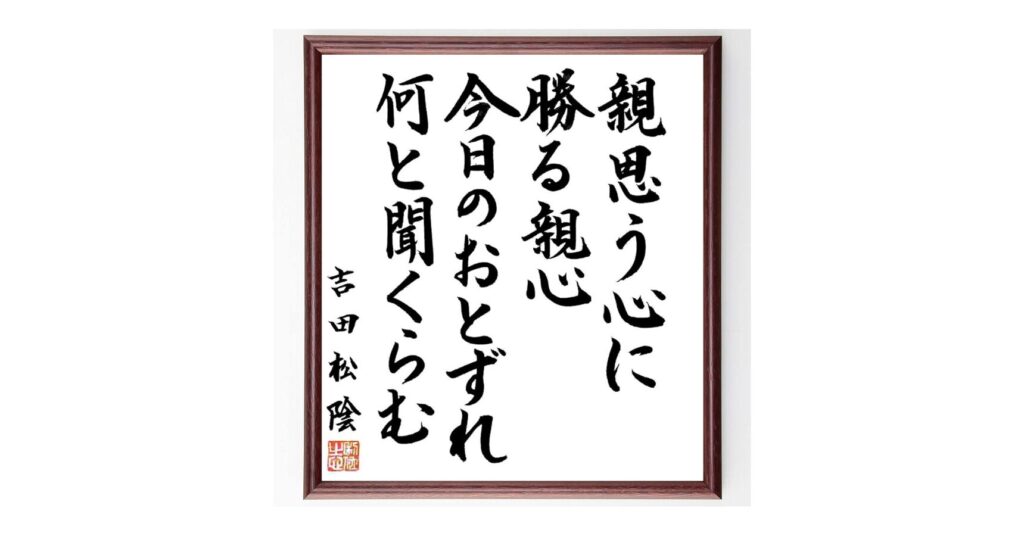 親思う心に
勝る親心
今日のおとずれ
何と聞くらむ
吉田松陰